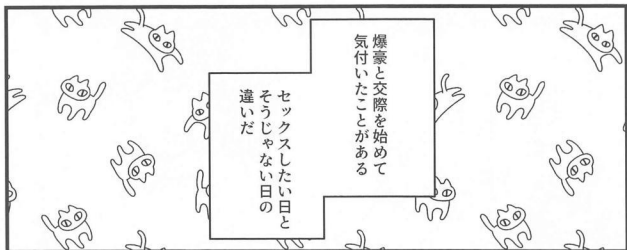 爆豪と交際を始めて
気付いたことがある
セックスしたい日と
そうじゃない日の
違いだ